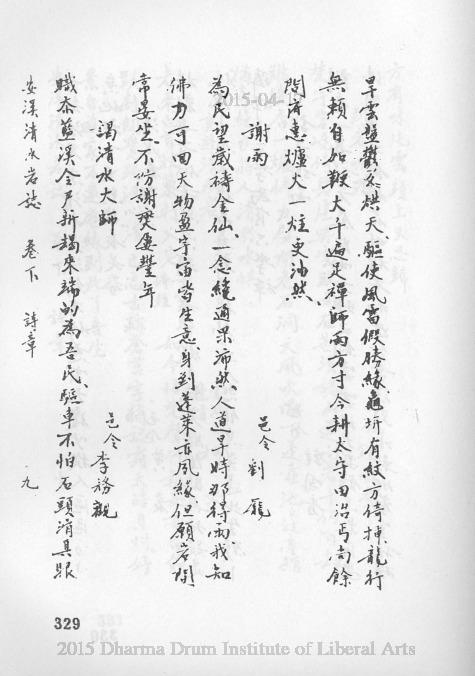 旱雲盤鬱久烘天、驅使風雷假勝緣、龜圻有紋方待 龍行
無賴自如鞭 大千遍足禪師雨 方寸今耕太守田 沿丐尚餘
閒濟惠、爐火一炷更油然、
謝雨 邑令 劉
為民望歲禱金仙、一念纔通果沛然、人道旱時那得雨、我知
佛力可回天、物盈宇宙皆生意、身到蓬萊亦夙緣、但願岩間
常晏坐、不仿謝 屢豐年
謁清水大師 邑令 李務觀
職忝藍溪令尹新、謁來端的為吾民、驅車不怕石頭滑、具眼
安溪清水岩誌 卷下 詩章 九
329
2015-04-
2015 Dharma Drum Institute of Liberal Arts